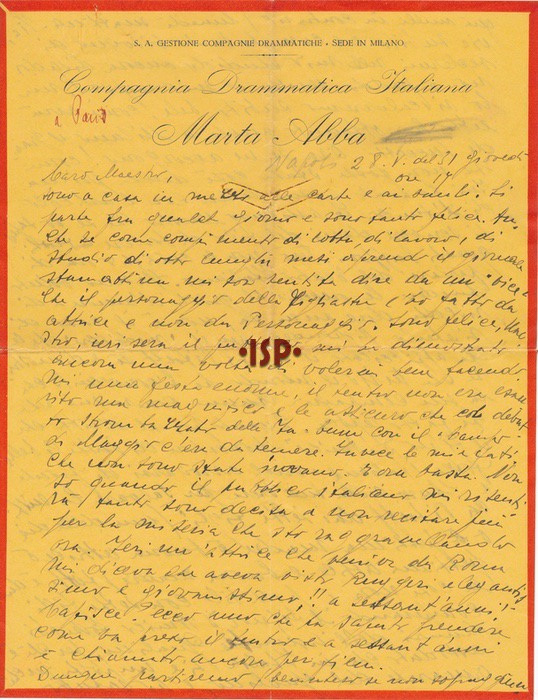 S. A. GESTIONE COMPAGNIE DRAMMATICHE - SEDE IN MILANO
Compagnia Drammatica Italiana
a Paris
Marta Abba
Napoli 28. V. del 31 giovedì
Caro Maestro, ore 17
sono a casa in mezzo alle carte e ai bauli. Si
parte fra qualche giorno e sono tanto felice. An-
che se come compimento di lotta, di lavoro, di
studio di otto lunghi mesi aprendo il giornale
stamattina mi son sentita dire da un "vice"
che il personaggio della Figliastra l'ho fatto da
attrice e non da Personaggio. Sono felice, Mae
stro, ieri sera il mi ha dimostrato
·ISP·
ancora una volta di volermi bene facendo
mi una festa enorme, il teatro non era esau
rito ma magnifico e le assicuro che col debut
to della con il
di Maggio c'era da temere. Invece le mie
che non sono state invano. E ora basta. Non
so quando il pubblico italiano mi risenti
rà tanto sono decisa a non recitare più
per la miseria che sto racgranellando
ora. Ieri un'attrice che veniva da Roma
mi diceva che aveva visto Ruggeri elegantis
simo e giovanissimo!! a sessant'anni!
Capisce? Ecco uno che ha saputo prendere
come va preso il teatro e a sessant'anni
è chiamato ancora per film.
Dunque partiremo se non